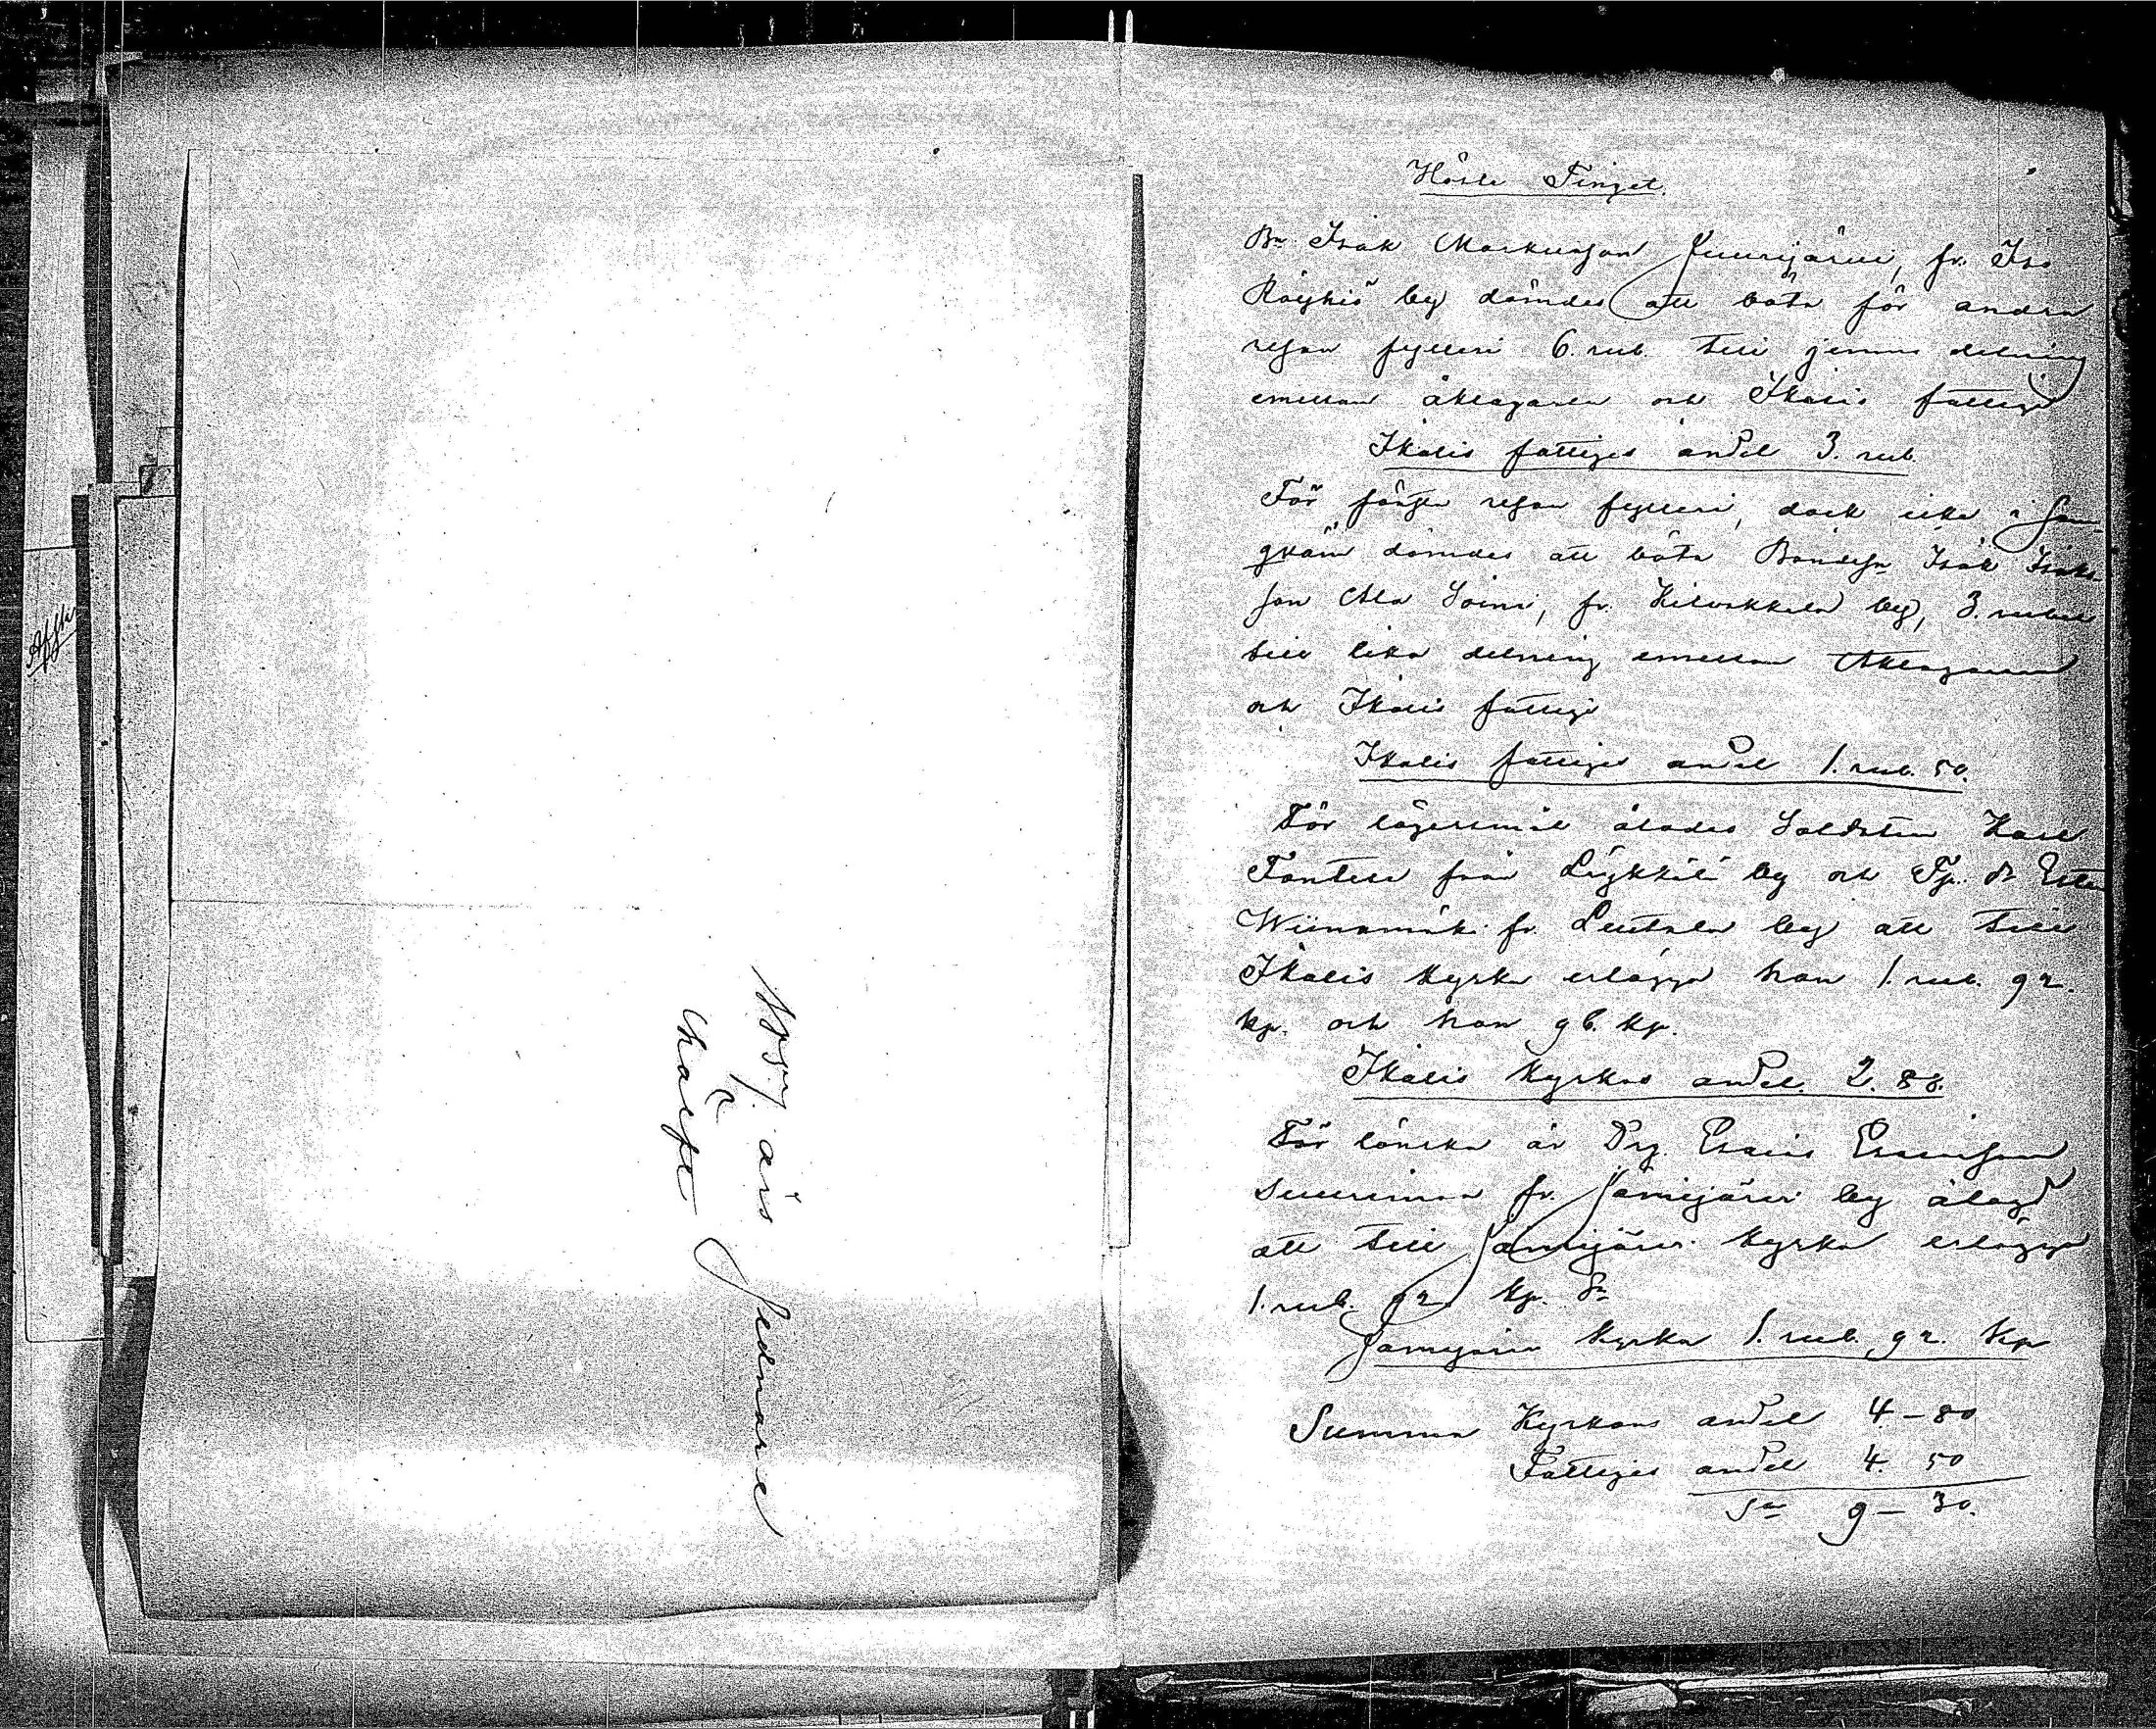 Höste Tinget.
Bn Isak Markusson Juurijärvi, fr. Iso
Röyhiö by dömdes att böta för andra
resan fylleri 6. rub. till jemn delning
emellan åklagaren och Ikalis fattige
Ikalis fattiges andel 3. rub.
För första resan fylleri, dock icke i sam-
qväm dömdes att böta Bondesn Isak Isaks-
son Ala Soini, fr. Kilvakkala by, 3. rubel
till lika delning emellan Åklagaren
och Ikalis fattige
Ikalis fattiges andel 1. rub. 50.
För lägersmål ålades Soldaten Karl
Fantesi från Läykkälä by och Tp. dr
Wiinamäki fr. Leutola by att till
Ikalis kyrka erlägga han 1. rub. 92.
kp. och hon 96. kp.
Ikalis kyrkas andel. 2. 88.
För lönska är Drg. Esaias Esaiasson
Suurimaa fr. Jämijärvi by ålagd
att till Jämijärvi kyrka erlägga
1. rub. 92 kp. Sr
Jämijärvi kyrka 1. rub. 92. kp
Summa Kyrkans andel 4 - 80
Fattiges andel 4. 50
Sa 9 - 30.
års Sednare
hälft